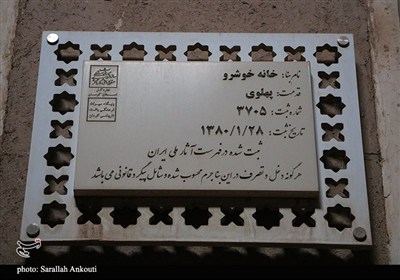 نام بنا: خانه خوشرو
قدمت: پهلوی
شماره ثبت: ۳۷۰۵
تاریخ ثبت: ۱۳۸۰/۱/۲۸
ثبت شده در فهرست آثار ملی ایران
هرگونه دخل و تصرف در این بنا جرم محسوب شده و شامل پیگرد قانونی می باشد
photo: Sarallah Ankouti